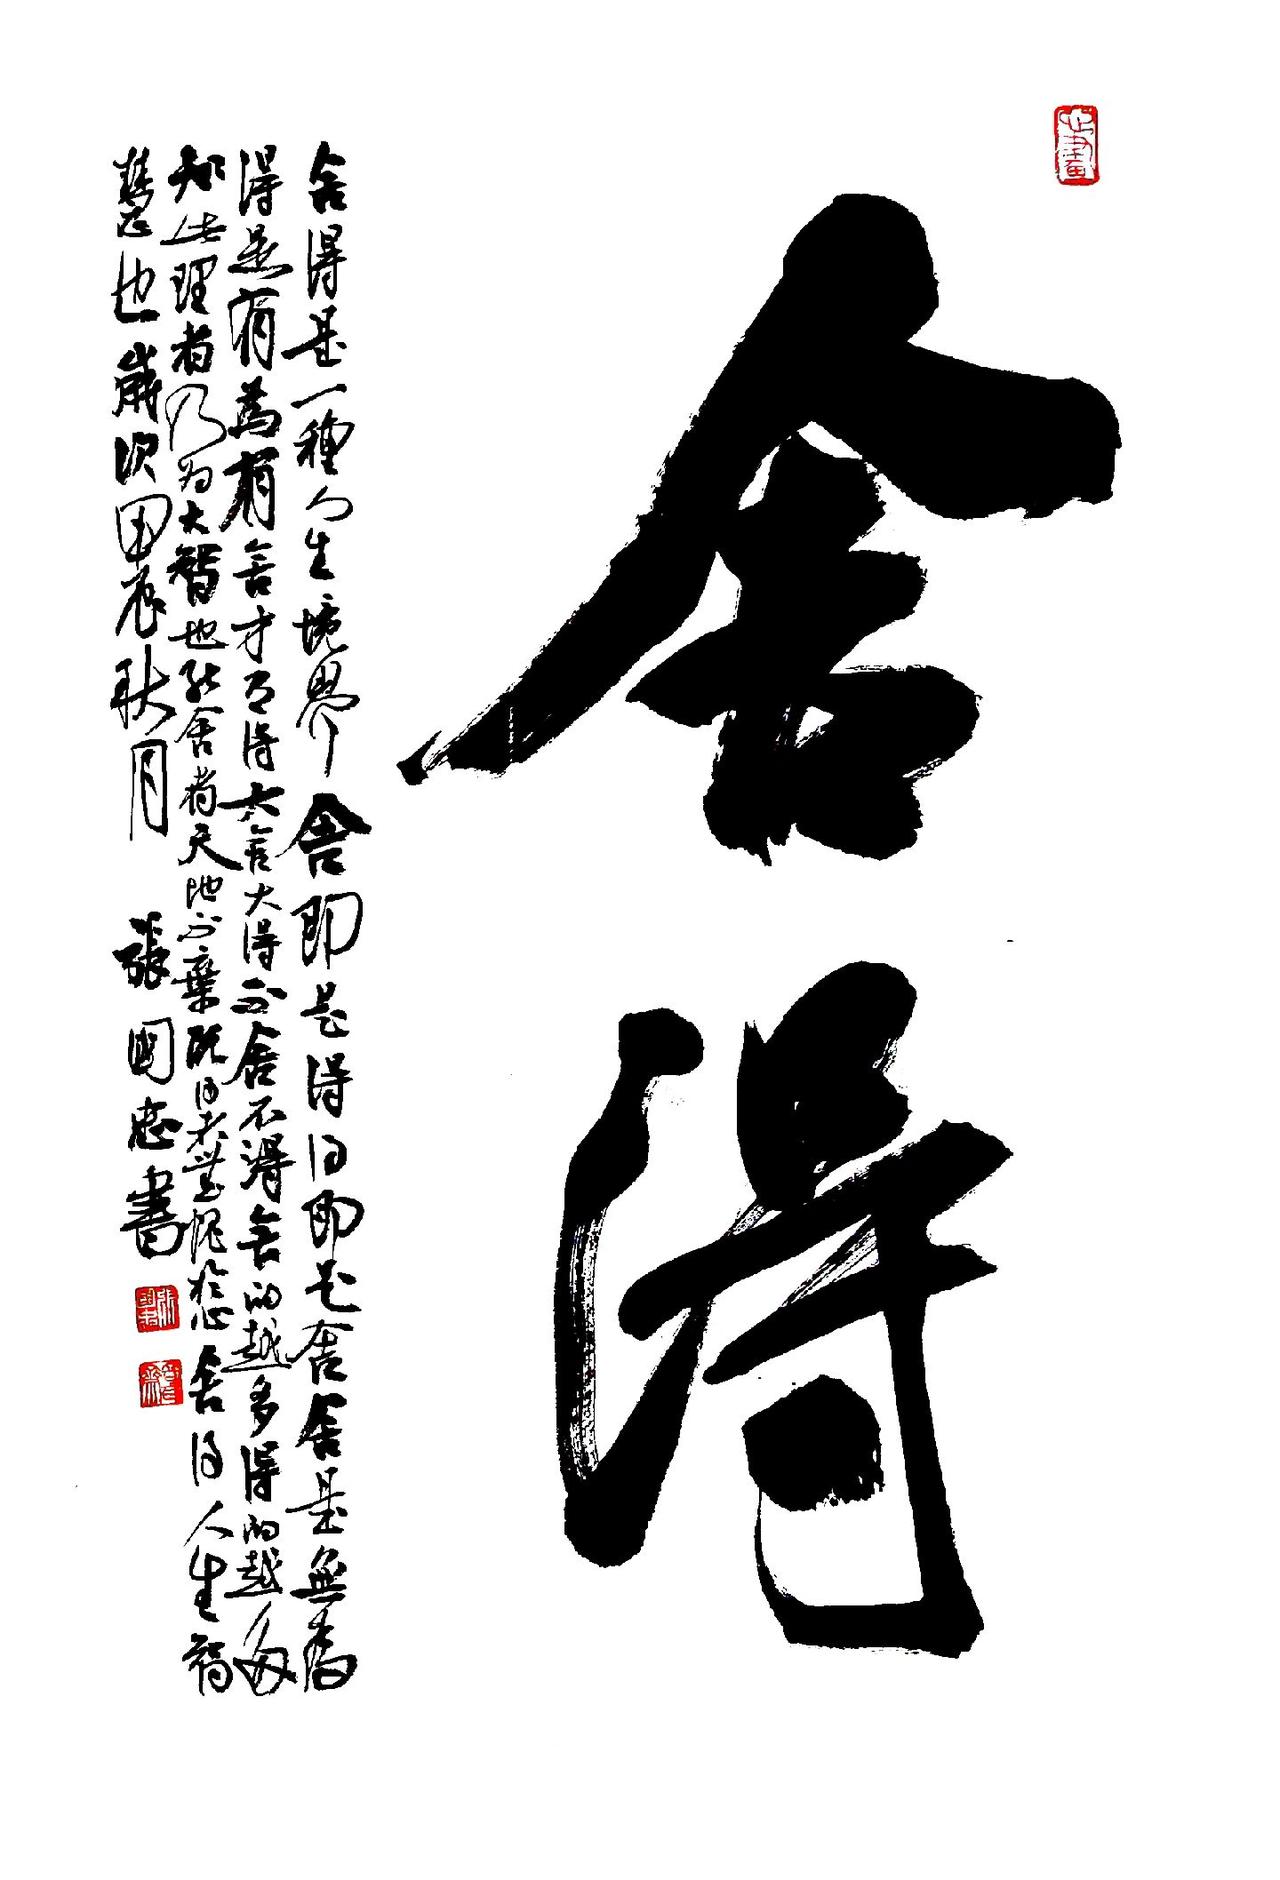 舍得
舍得是一種人生境界舍即是得得即是舍舍是無為
得是有為有舍才有得大舍大得不舍不得舍的越多得的越多
知此理者乃为大智也能舍者天地不棄得愧於心舍得人生福
慧也歲次甲辰秋月 張國忠書